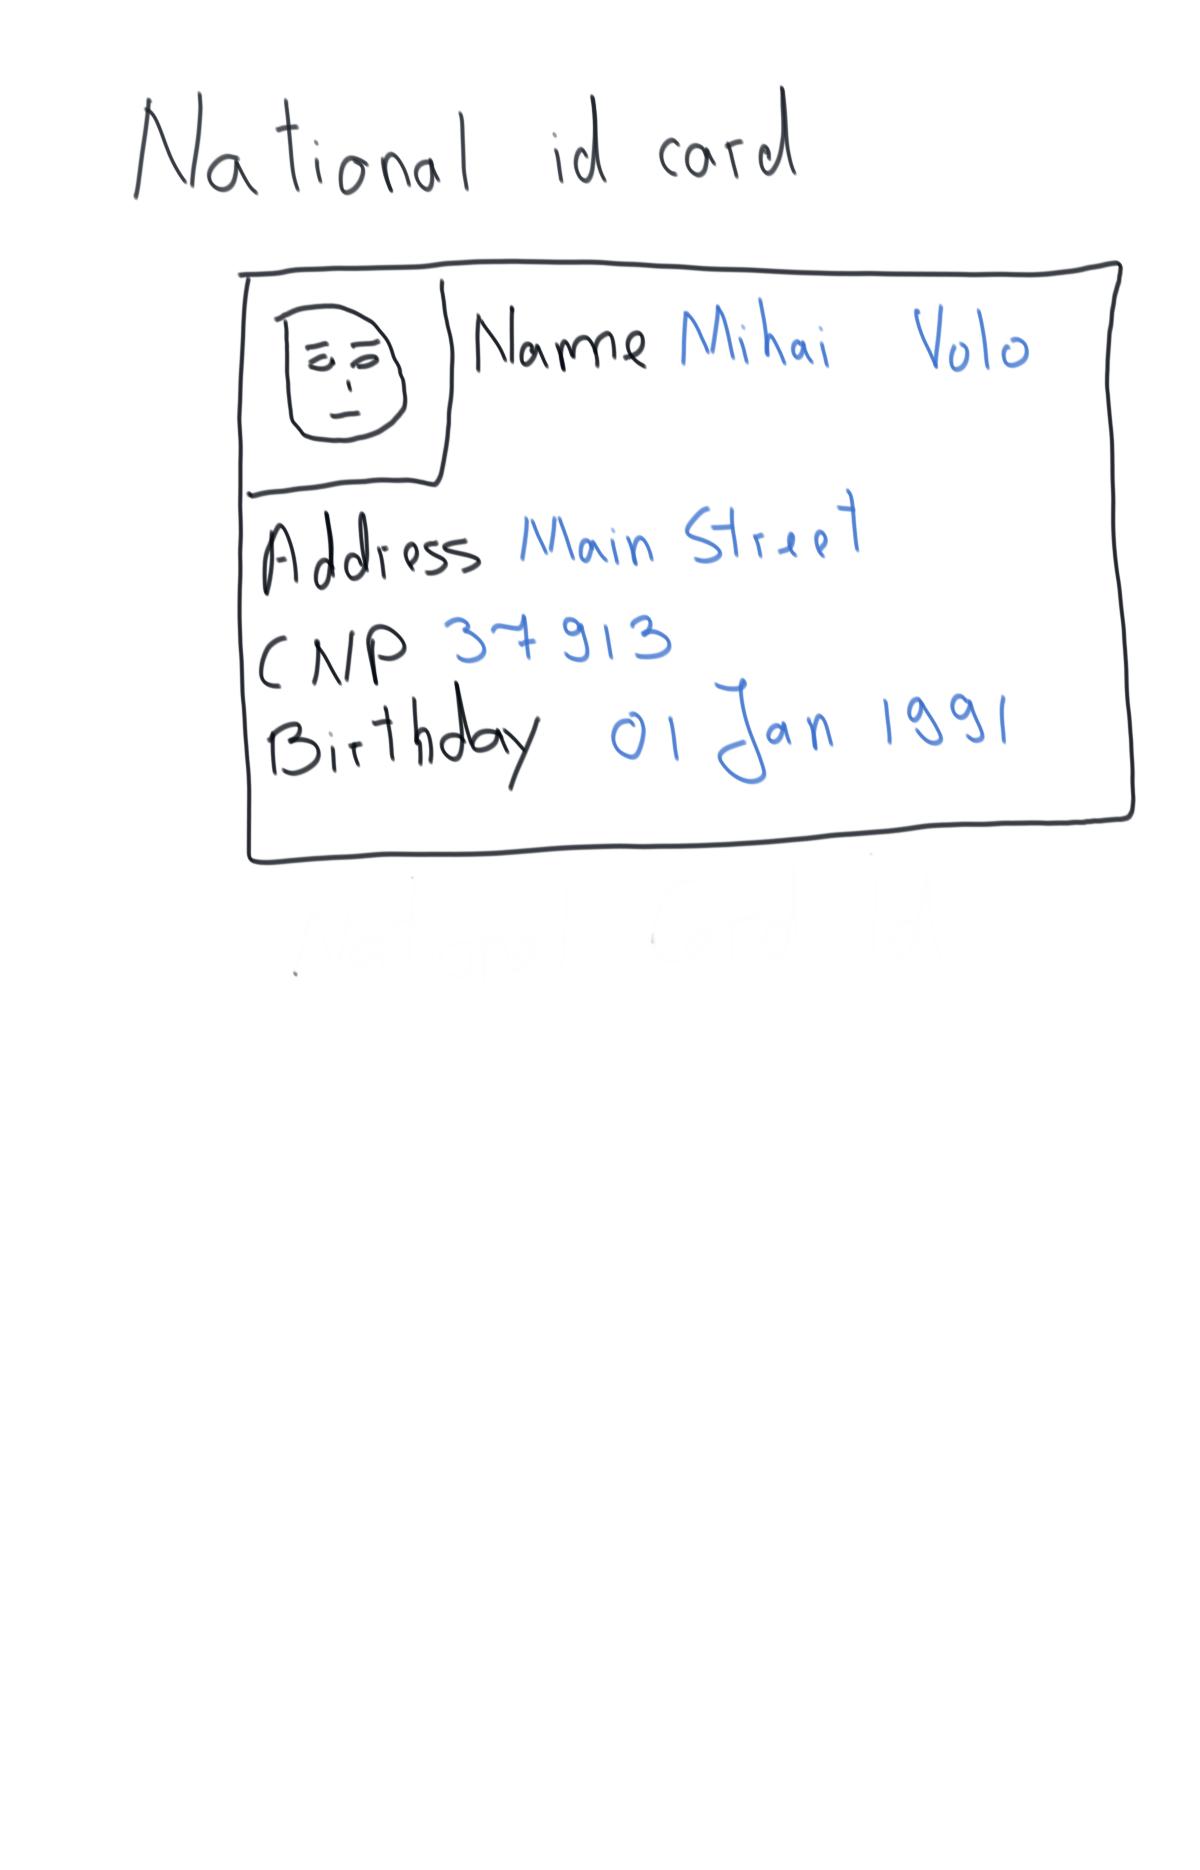 National id card
Name Mihai Volo
Address Main Street
CNP 37913
Birthday 01 Jan 1991
National Card Id